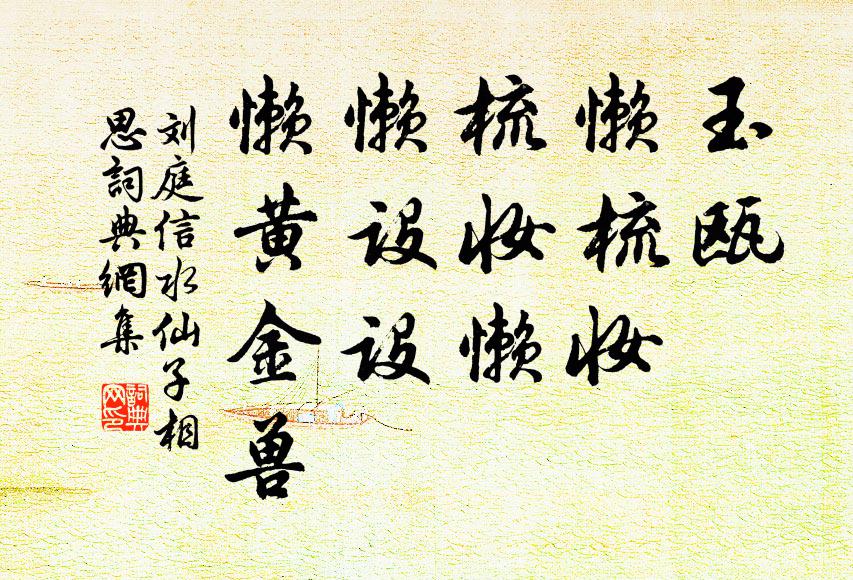 玉瓯
懒梳妆
梳妆懒
懒设设
懒黄金兽
刘庭信水仙子相
思詞典網集
詞典
网印